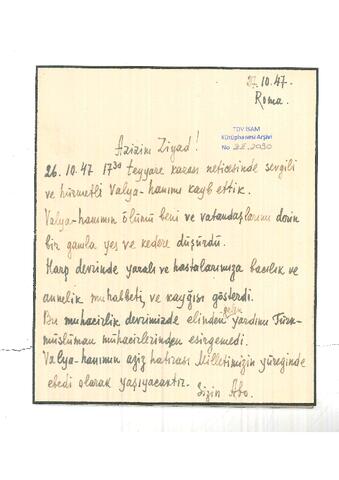 27.10.47.
Roma.
TDV İSAM
Kütüphanesi Arşivi
No ZE.2030
Azizim Ziyad!
26.10.47 17³⁰ teyyare kazası neticesinde sevgili
ve hürmetli Valya-hanımı kayb ettik.
Valya-hanımın ölümü beni ve vatandaşlarımı derin
bir gamla yes ve kedere düşürdü.
Harp devrinde yaralı ve hastalarımıza bacılık ve
annelik muhabbeti ve kayğısı gösterdi.
Bu muhacirlik devrimizde elinden gelen yardımı Türk-
müsluman mühacirlerinden esirgemedi.
Valya-hanımın aziz hatırası Milletimizin yüreginde
ebedi olarak yaşıyacaktır.
Sizin Abo.